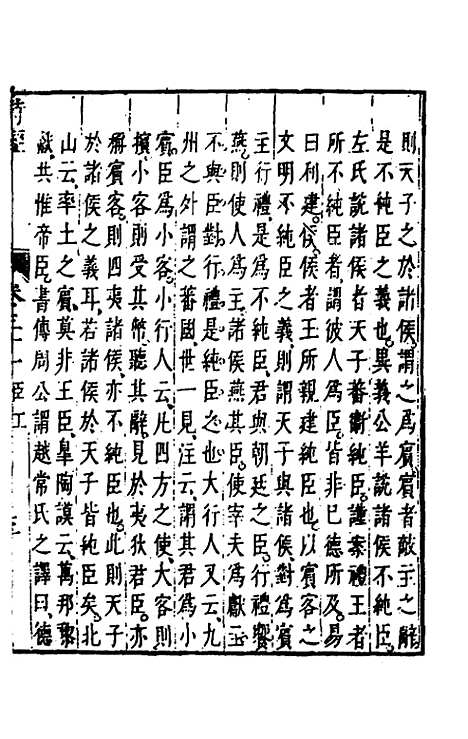 則天子之於諸侯謂之爲賓賓者敵主之辭
是不純臣之義也異義公羊說諸侯不純臣
左氏說諸侯者天子蕃衛純臣謹案禮王者
所不純臣者謂彼人爲臣皆非己德所及易
曰利建侯侯者王所親建純臣也以賓客之
文明不純臣之義則謂天子與諸侯對爲賓
主行禮是爲不純臣君與朝廷之臣行禮饗
燕則使人爲主諸侯燕其臣使宰夫爲獻主
不與臣對行禮是純臣也大行人又云九
州之外謂之蕃國世一見注云謂其君爲小
賓臣爲小客小行人云凡四方之使大客則
擯小客則受其幣聽其辭見於夷狄君臣亦
稱賓客則四夷諸侯亦不純臣也此則天子
於諸侯之義耳若諸侯於天子皆純臣矣北
山云率土之賓莫非王臣皐陶謨云萬邦黎
獻共惟帝臣書傳周公謂越常氏之譯曰德
詩經
卷二十一
臣工